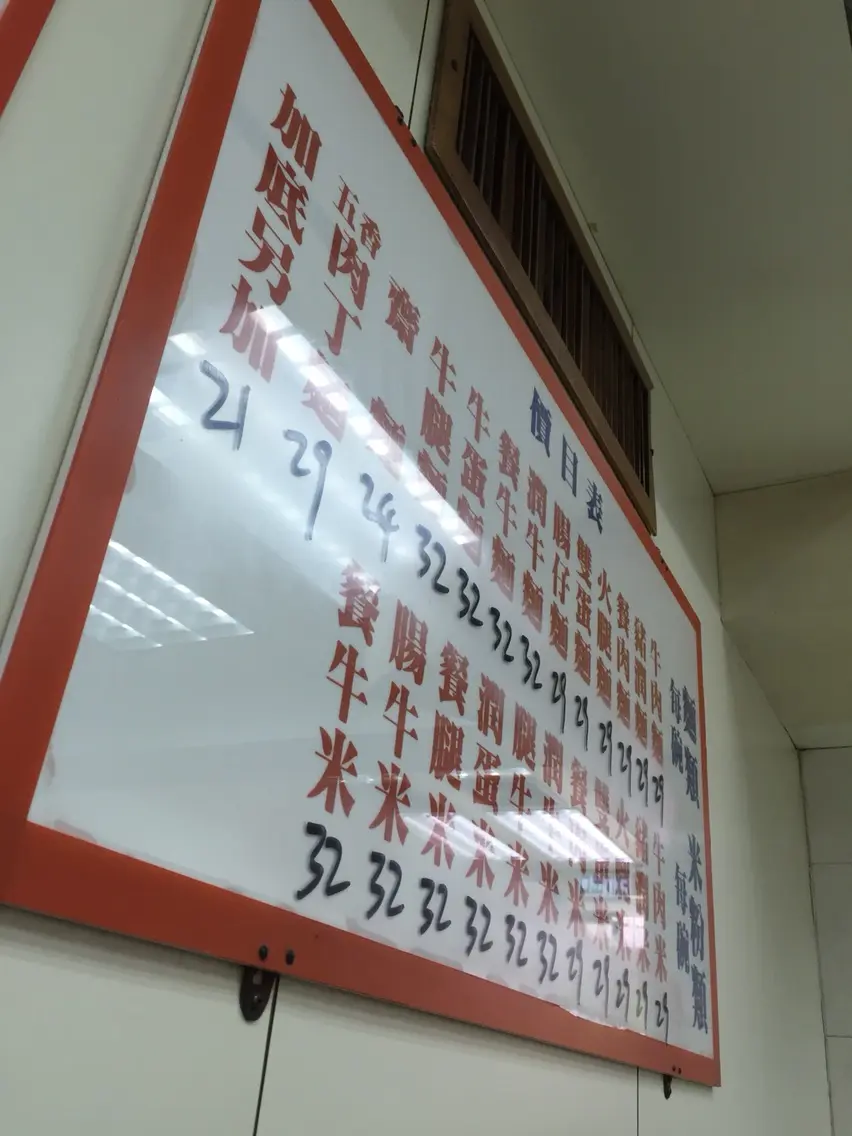 價目表
麵類 每碗
牛肉麵 29
豬潤麵 29
餐肉麵 29
火腿麵 29
雙蛋麵 29
腸仔麵 29
潤牛麵 32
餐牛麵 32
牛蛋麵 32
牛腿麵 32
齋麵 24
五香肉丁麵 29
加底另加 21
米粉類 每碗
牛肉米 29
豬潤米 29
火腿米 29
雙蛋米 29
餐肉米 29
潤牛米 32
腿牛米 32
潤蛋米 32
餐腿米 32
腸牛米 32
餐牛米 32